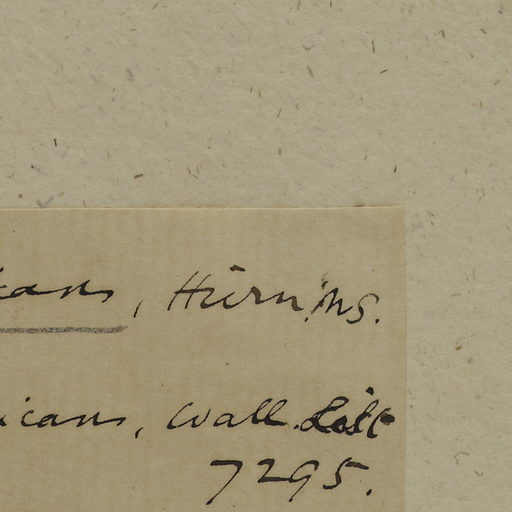 icans, Hürn. MS.
icans, Wall. List
7295.